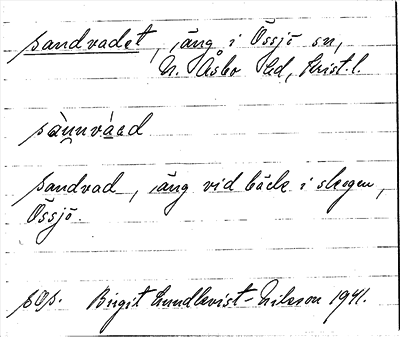 sandvadet, äng i Össjö sn,
N. Åsbo hd, Krist. l.
sànnvàad
sandvad, äng vid bäck i skogen,
Össjö.
pop. Birgit Lundkvist-Nilsson 1941.